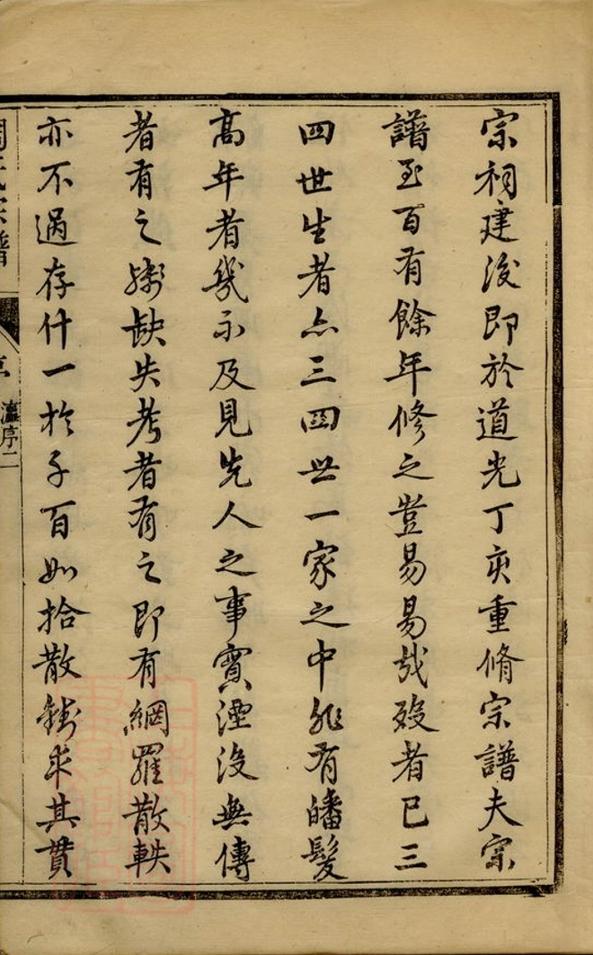 宗祠建後即於道光丁亥重脩宗譜夫宗
譜至百有餘年修之豈易易哉歿者已三
四世生者亦三四世一家之中非有皤髮
高年者幾不及見先人之事實湮没無傳
者有之殘缺失考者有之即有網羅散軼
亦不過存什一於千百如拾散錢求其貫
氏宗譜
序二